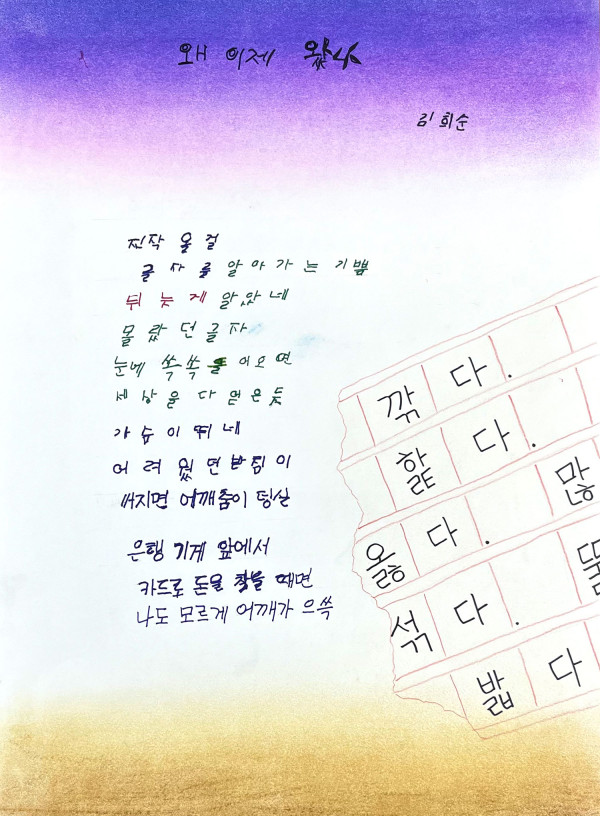 왜 이제 왔나
김희순
진작 올 걸
글자를 알아가는 기쁨
뒤늦게 알았네
몰랐던 글자
눈에 쏙쏙 들어오면
세상을 다 얻은듯
가슴이 뛰네
어려웠던 받침이
써지면 어깨춤이 덩실
은행 기계 앞에서
카드로 돈을 찾을 때면
나도 모르게 어깨가 으쓱
깎다.
핥다.
많
옳다.
뚫
섞다.
밟다